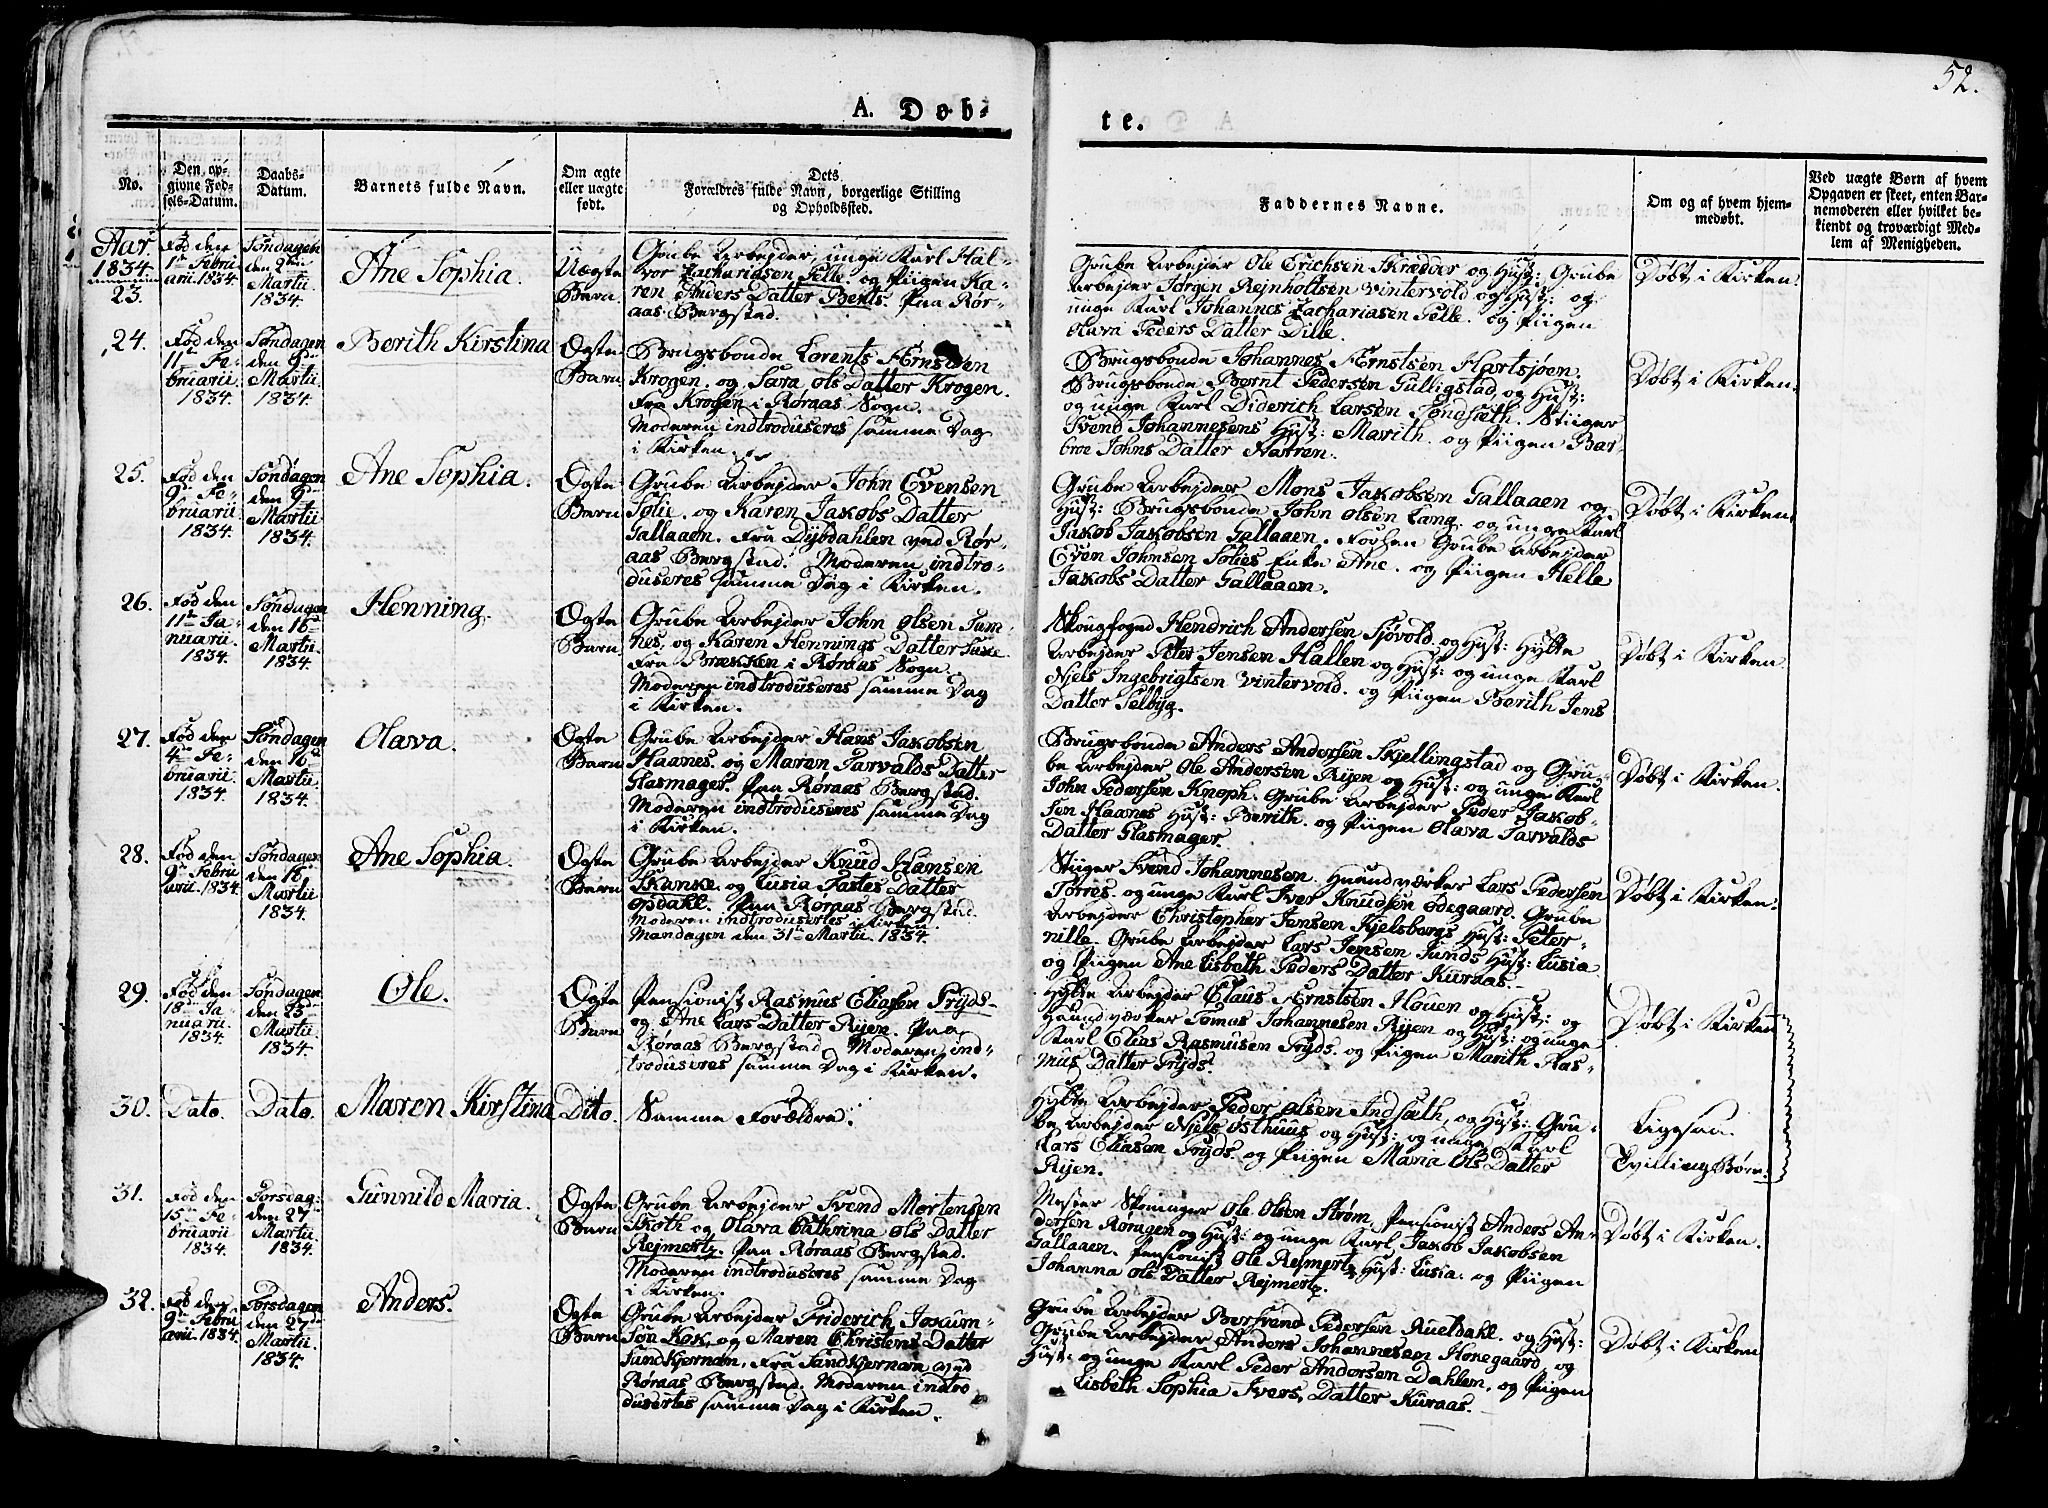 52.
A. Døb-
te.
No.
Den op-
givne Fød-
sels-Datum.
Daabs-
Datum.
Barnets fulde Navn.
Om ægte
eller uægte
født.
Dets
Forældres fulde Navn, borgerlige Stilling
og Opholdssted.
Faddernes Navne.
Om og af hvem hjem-
medøbt.
Ved uægte Børn af hvem
Opgaven er skeet, enten Bar-
nemoderen eller hvilket be-
kiendt og troværdigt Med-
lem af Menigheden.
Aar
1834.
23.
Fød den
1te Febru
arii 1834.
Søndagen
den 2den
Martii
1834.
Ane Sophia.
Uægte
Barn.
Grube Arbejder, unge Karl Hal-
vor Zachariasen Selle og Piigen Ka-
ren Anders Datter Bents. Paa Rør-
aas Bergstad.
Grube Arbejder Ole Erichsen Skrædder og Hust: Grube
Arbejder Jørgen Rejnholtsen Vintervold og Hust: og
unge Karl Johannes Zachariasen Selle. og Piigen
Kara Peders Datter Dille.
Døbt i Kirken.
24.
Fød den
11te Fe-
bruarii
1834.
Søndagen
den 9de
Martii
1834.
Berith Kirstina
Ægte
Barn.
Brugsbonde Lorents Ernstsen
Krogen. og Sara Ols Datter Krogen.
Fra Krogen i Røraas Sogn.
Moderen indtroduseres samme Dag
i Kirken.
Brugsbonde Johannes Ernstsen Hartsjøen.
Brugsbonde Bernt Pedersen Gulligstad, og Hust:
og unge Karl Diderich Larsen Søndsæth. Stiiger
Svend Johannesens Hust: Marith. og Piigen Bar-
broe Johns Datter Næsren.
Døbt i Kirken.
25.
Fød den
9de Fe-
bruarii
1834.
Søndagen
den 9de
Martii
1834.
Ane Sophia.
Ægte
Barn
Grube Arbejder John Evensen
Solie. og Karen Jakobs Datter
Gallaaen. Fra Dybdahlen ved Rør-
aas Bergstad. Moderen indtro-
duseres samme Dag i Kirken.
Grube Arbejder Mons Jakobsen Gallaaen og
Hust: Brugsbonde John Olsen Lang. og unge Karl
Jakob Jakobsen Gallaaen. Forhen Grube Arbejder
Even Johnsen Solies Enke Ane. og Piigen Helle
Jakobs Datter Gallaaen.
Døbt i Kirken
26.
Fød den
11te Ja-
nuarii
1834.
Søndagen
den 16de
Martii
1834.
Henning.
Ægte
Barn.
Grube Arbejder John Olsen Sum-
nes, og Karen Hennings Datter Suxe.
Fra Brækken i Røraas Sogn.
Moderen indtroduseres samme Dag
i Kirken.
Skougfoged Hendrich Andersen Sjøvold. og Hust: Hytte
Arbejder Peter Jensen Hallen og Hust: og unge Karl
Niels Ingebrigtsen Vintervold. og Piigen Berith Jens
Datter Selbyg.
Døbt i Kirken.
27.
Fød den
4de Fe-
bruarii
1834.
Søndagen
den 16de
Martii
1834.
Olava.
Ægte
Barn.
Grube Arbejder Hans Jakobsen
Haanes. og Maren Tarvalds Datter
Glasmager. Paa Røraas Bergstad.
Moderen indtroduseres samme Dag
i Kirken.
Brugsbonde Anders Andersen Skjellingstad og Gru-
be Arbejder Ole Andersen Rijen og Hust: og unge Karl
John Pedersen Knoph. Grube Arbejder Peder Jakob-
sen Haanes Hust: Berith. og Piigen Olava Tarvalds
Datter Glasmager.
Døbt i Kirken.
28.
Fød den
9de Febru
arii. 1834.
Søndagen
den 16
Martii
1834.
Ane Sophia.
Ægte
Barn
Grube Arbejder Knud Hansen
Skanke. og Lusia Fastes Datter
Opdahl. Paa Røraas Bergstad.
Moderen indtrodusertes i Kirken
Mandagen den 31te Martii. 1834.
Stiiger Svend Johannesen. Haandværker Lars Pedersen
Torres. og unge Karl Iver Knudsen Ødegaard. Grube
Arbejder Christopher Jensen Kjelsbergs Hust: Peter-
nille. Grube Arbejder Lars Jensen Sunds Hust: Lusia
og Piigen Ane Lisbeth Peders Datter Kuraas.
Døbt i Kirken.
29.
Fød den
18de Ja-
nuarii
1834.
Søndagen
den 23de
Martii
1834.
Ole.
Ægte
Barn.
Pensionist Rasmus Eliasen Pryds-
og Ane Lars Datter Rijen. Paa
Røraas Bergstad. Moderen, ind-
troduseres samme Dag i Kirken.
Hytte Arbejder Claus Ernstsen Houen og Hust: og
Haandværker Tomas Johannesen Rijen og Hust: og unge
Karl Elias Rasmusen Pryds. og Piigen Marith Ras-
mus Datter Pryds.
Døbt i Kirken
30.
Dato.
Dato.
Maren Kirstina
Dito.
Samme Forældre.
Hytte Arbejder Peder Olsen Indsæth, og Hust: Gru-
be Arbejder Niels Østhuus og Hust: og unge Karl
Lars Eliasen Pryds. og Piigen Maria Ols Datter
Rijen.
Ligesaa.
Tvilling Børn.
31.
Fød den
15de Fe-
bruarii
1834.
Torsdag:
den 27de
Martii
1834.
Gunnild Maria.
Ægte
Barn
Grube Arbejder Svend Mortensen
Skoth og Olava Cathrina Ols Datter
Rejmertz. Paa Røraas Bergstad.
Moderen indtroduseres samme Dag
i Kirken.
Mester Ole Olsen Strøm, Pensionist Anders An-
dersen Røragen og Hust: og unge Karl, Jakob Jakobsen
Gallaaen. Pensionist Ole Rejmertz Hust: Lusia. og Piigen
Johanna Ols Datter Rejmertz.
Døbt i Kirken.
32.
Fød den
9de Febru
arii. 1834.
Torsdagen
den 27de
Martii
1834.
Anders.
Ægte
Barn
Grube Arbejder Friderich Joxum-
sen Kok. og Maren Christens Datter
Sundkjernæn. Fra Sandkjernæn ved
Røraas Bergstad. Moderen indtro
dusertes samme Dag i Kirken.
Grube Arbejder Bersvend Pedersen Rueldahl. og Hust:
Grube Arbejder Anders Johannesen Honegaard, og
Hust: og unge Karl Peder Andersen Dahlen, og Piigen
Lisbeth Sophia Ivers Datter Kuraas.
Døbt i Kirken